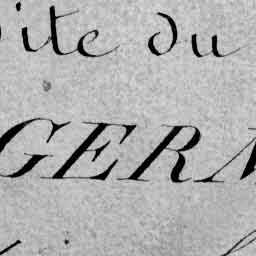 Vite du
GERM